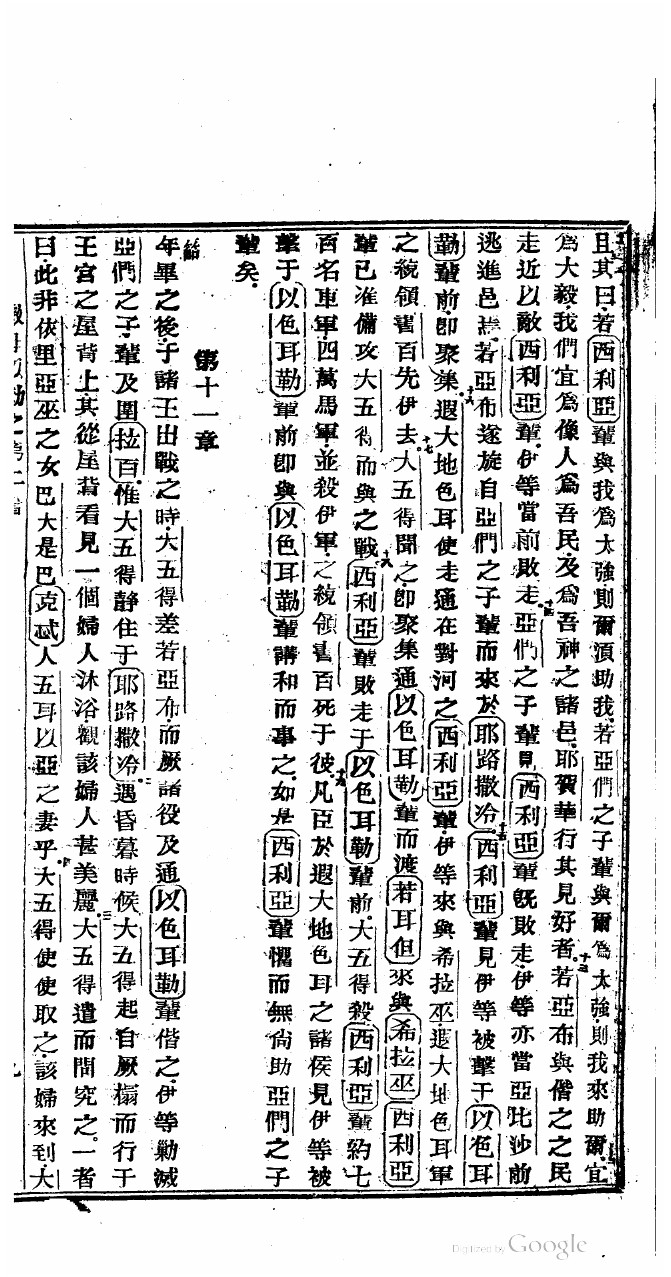 且其曰若西利亞輩與我爲太強則爾須助我若亞們之子輩與爾爲太強則我來助爾宜
爲大毅我們宜爲像人爲吾民及爲吾神之諸邑耶賀華行其見好者十三若亞布與偕之之民
走近以敵西利亞輩伊等當前敗走十四亞們之子輩見西利亞輩旣敗走伊等亦當亞比沙前
逃進邑焉若亞布遂旋自亞們之子輩而來於耶路撒冷十五西利亞輩見伊等被擊于以色耳
勒輩前卽聚集十六遐大地色耳使走通在對河之西利亞輩伊等來與希拉巫遐大地色耳軍
之統領書百先伊去十七大五得聞之卽聚集通以色耳勒輩而渡若耳但來與希拉巫西利亞
輩已准備攻大五得而與之戰十八西利亞輩敗走于以色耳勒輩前大五得殺西利亞輩約七
百名車軍四萬馬軍並殺伊軍之統領書百死于彼十九凡臣於遐大地色耳之諸侯見伊等被
擊于以色耳勒輩前卽與以色耳勒輩講和而事之如是西利亞輩懼而無尙助亞們之子
輩矣
第十一章
節年畢之後于諸王出戰之時大五得差若亞布而厥諸役及通以色耳勒輩偕之伊等勦滅
亞們之子輩及圍拉百惟大五得靜住于耶路撒冷二遇昏暮時候大五得起自厥榻而行于
王宮之屋背上其從屋背看見一個婦人沐浴觀該婦人甚美麗三大五得遣而問究之一者
曰此非依里亞巫之女巴大是巴克忒人五耳以亞之妻乎四大五得使使取之該婦來到大
九
Digitized by Google